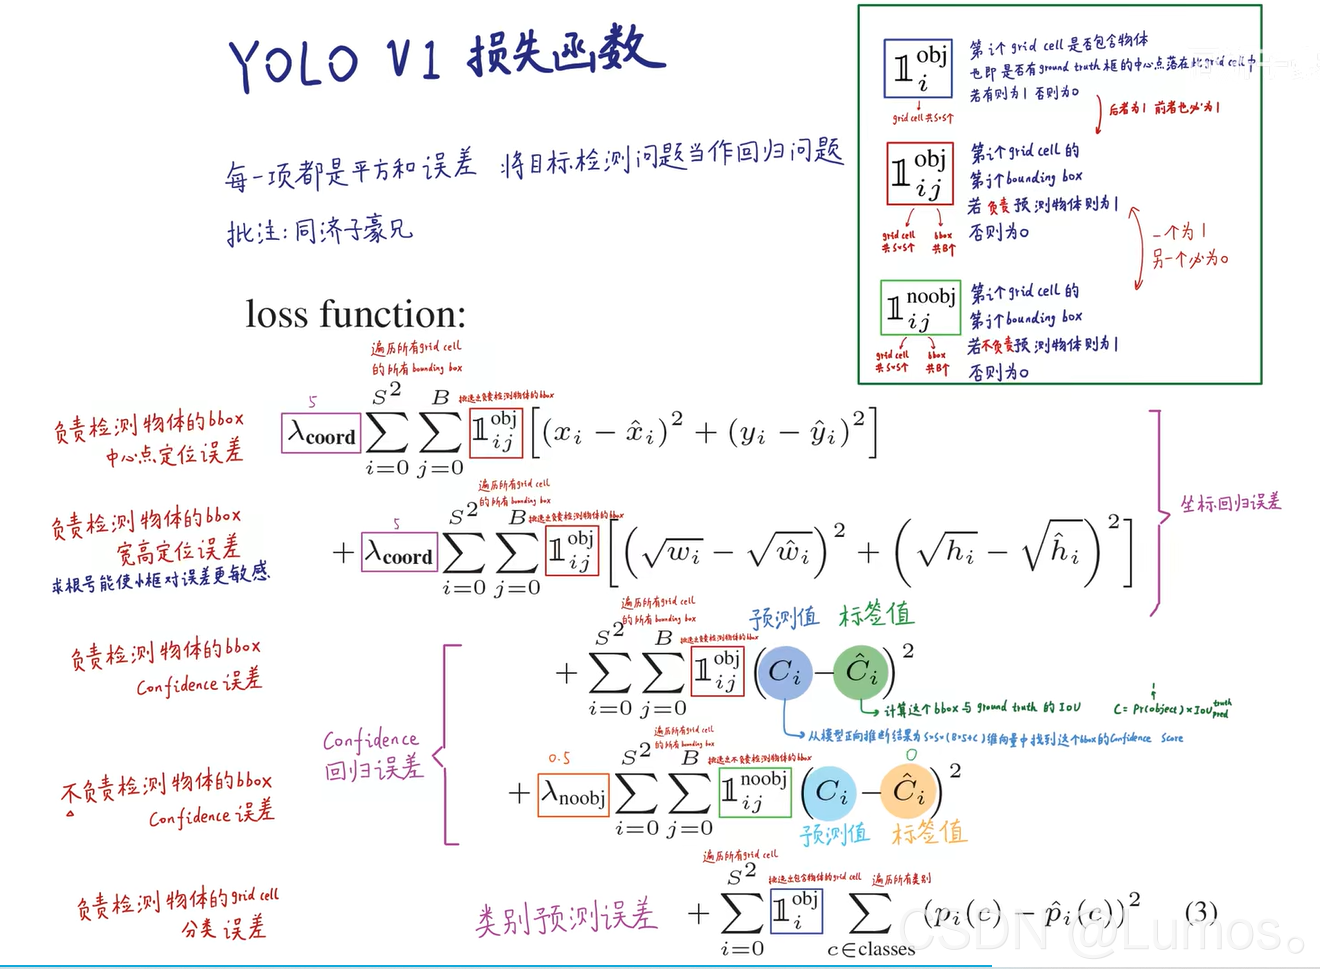 YOLO V1 损失函数
每一项都是平方和误差 将目标检测问题当作回归问题
批注:同济子豪兄
𝟙_i^obj
grid cell共S*S个
第i个grid cell是否包含物体
也即是否有ground truth框的中心点落在此grid cell中
若有则为1 否则为0
后者为1 前者也必为1
𝟙_ij^obj
grid cell
共S*S个
bbox
共B个
第i个grid cell的
第j个bounding box
若负责预测物体则为1
否则为0
一个为1
另一个必为0
𝟙_ij^noobj
grid cell
共S*S个
bbox
共B个
第i个grid cell的
第j个bounding box
若不负责预测物体则为1
否则为0
loss function:
遍历所有grid cell
的所有bounding box
挑选出负责检测物体的bbox
5
负责检测物体的bbox
中心点定位误差
λ_coord ∑_{i=0}^{S^2} ∑_{j=0}^{B} 𝟙_ij^obj [(x_i − x̂_i)^2 + (y_i − ŷ_i)^2]
坐标回归误差
遍历所有grid cell
的所有bounding box
挑选出负责检测物体的bbox
5
负责检测物体的bbox
宽高定位误差
求根号能使小框对误差更敏感
+ λ_coord ∑_{i=0}^{S^2} ∑_{j=0}^{B} 𝟙_ij^obj [(√w_i − √ŵ_i)^2 + (√h_i − √ĥ_i)^2]
遍历所有grid cell
的所有bounding box
挑选出负责检测物体的bbox
预测值 标签值
负责检测物体的bbox
Confidence误差
+ ∑_{i=0}^{S^2} ∑_{j=0}^{B} 𝟙_ij^obj (C_i − Ĉ_i)^2
计算这个bbox与ground truth的IoU
1
C= Pr(object)*IoU^truth_pred
从模型正向推断结果为S*S*(B*5+C)维向量中找到这个bbox的Confidence Score
Confidence
回归误差
遍历所有grid cell
的所有bounding box
挑选出不负责检测物体的bbox
0.5
0
不负责检测物体的bbox
Confidence误差
+ λ_noobj ∑_{i=0}^{S^2} ∑_{j=0}^{B} 𝟙_ij^noobj (C_i − Ĉ_i)^2
预测值 标签值
遍历所有grid cell
挑选出包含物体的grid cell
遍历所有类别
负责检测物体的grid cell
分类误差
类别预测误差
+ ∑_{i=0}^{S^2} 𝟙_i^obj ∑_{c∈classes} (p_i(c) − p̂_i(c))^2 (3)
CSDN @Lumos。